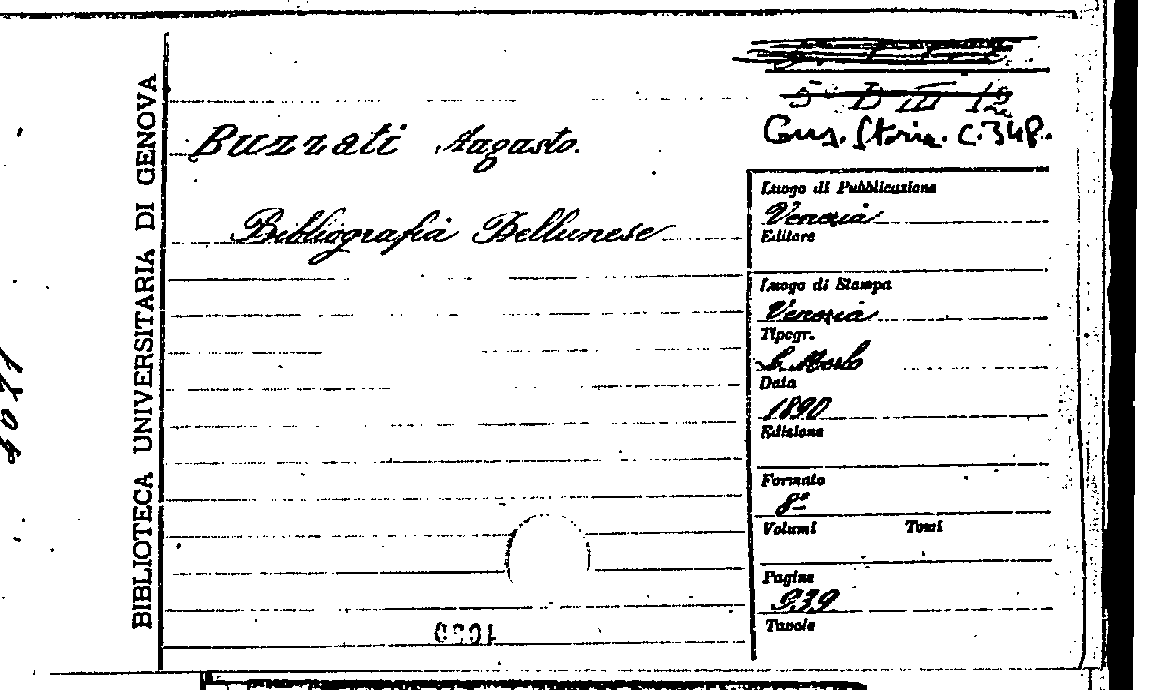 BIBLIOTECA UNIVERSITARIA DI GENOVA
5 D III 12
Cons. Storia. C.348.
Buzzati Augusto.
Bibliografia Bellunese
Luogo di Pubblicazione
Venezia
Editore
Luogo di Stampa
Venezia
Tipogr.
Data
1890
Edizione
Formato
8º
Volumi Tomi
Pagine
939
Tavole